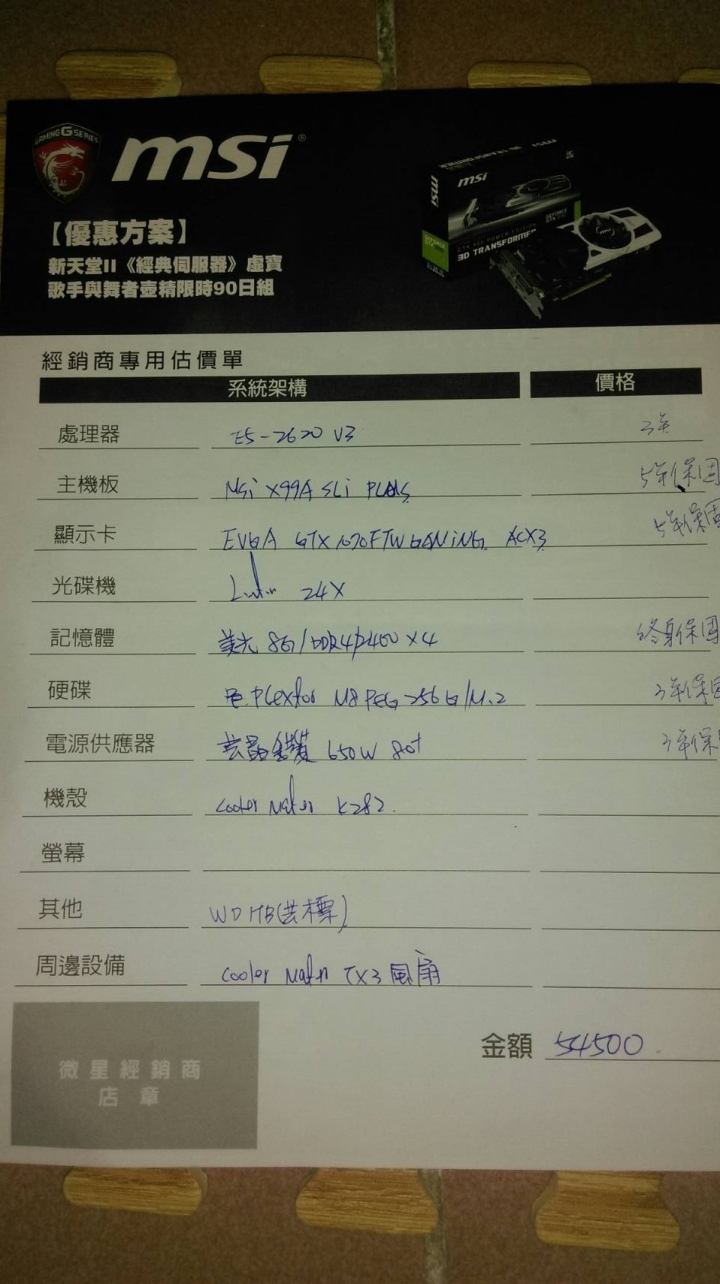 GAMING G SERIES
msi
msi
3D TRANSFORMER
【優惠方案】
新天堂II《經典伺服器》虛寶
歌手與舞者壺精限時90日組
經銷商專用估價單
系統架構 價格
處理器 E5-2620 V3 3年
主機板 Msi X99A SLi PLUS 5年保固
顯示卡 EVGA GTX 1070 FTW GAMING ACX3 5年保固
光碟機 24X
記憶體 美光 8G/DDR4/2400 X4 終身保固
硬碟 Plextor M8PEG 256G/M.2 3年保固
電源供應器 650W 80+ 3年保
機殼 Cooler Master K282
螢幕
其他 WD 1TB(藍標)
周邊設備 Cooler Master TX3 風扇
金額 54500
微星經銷商
店章